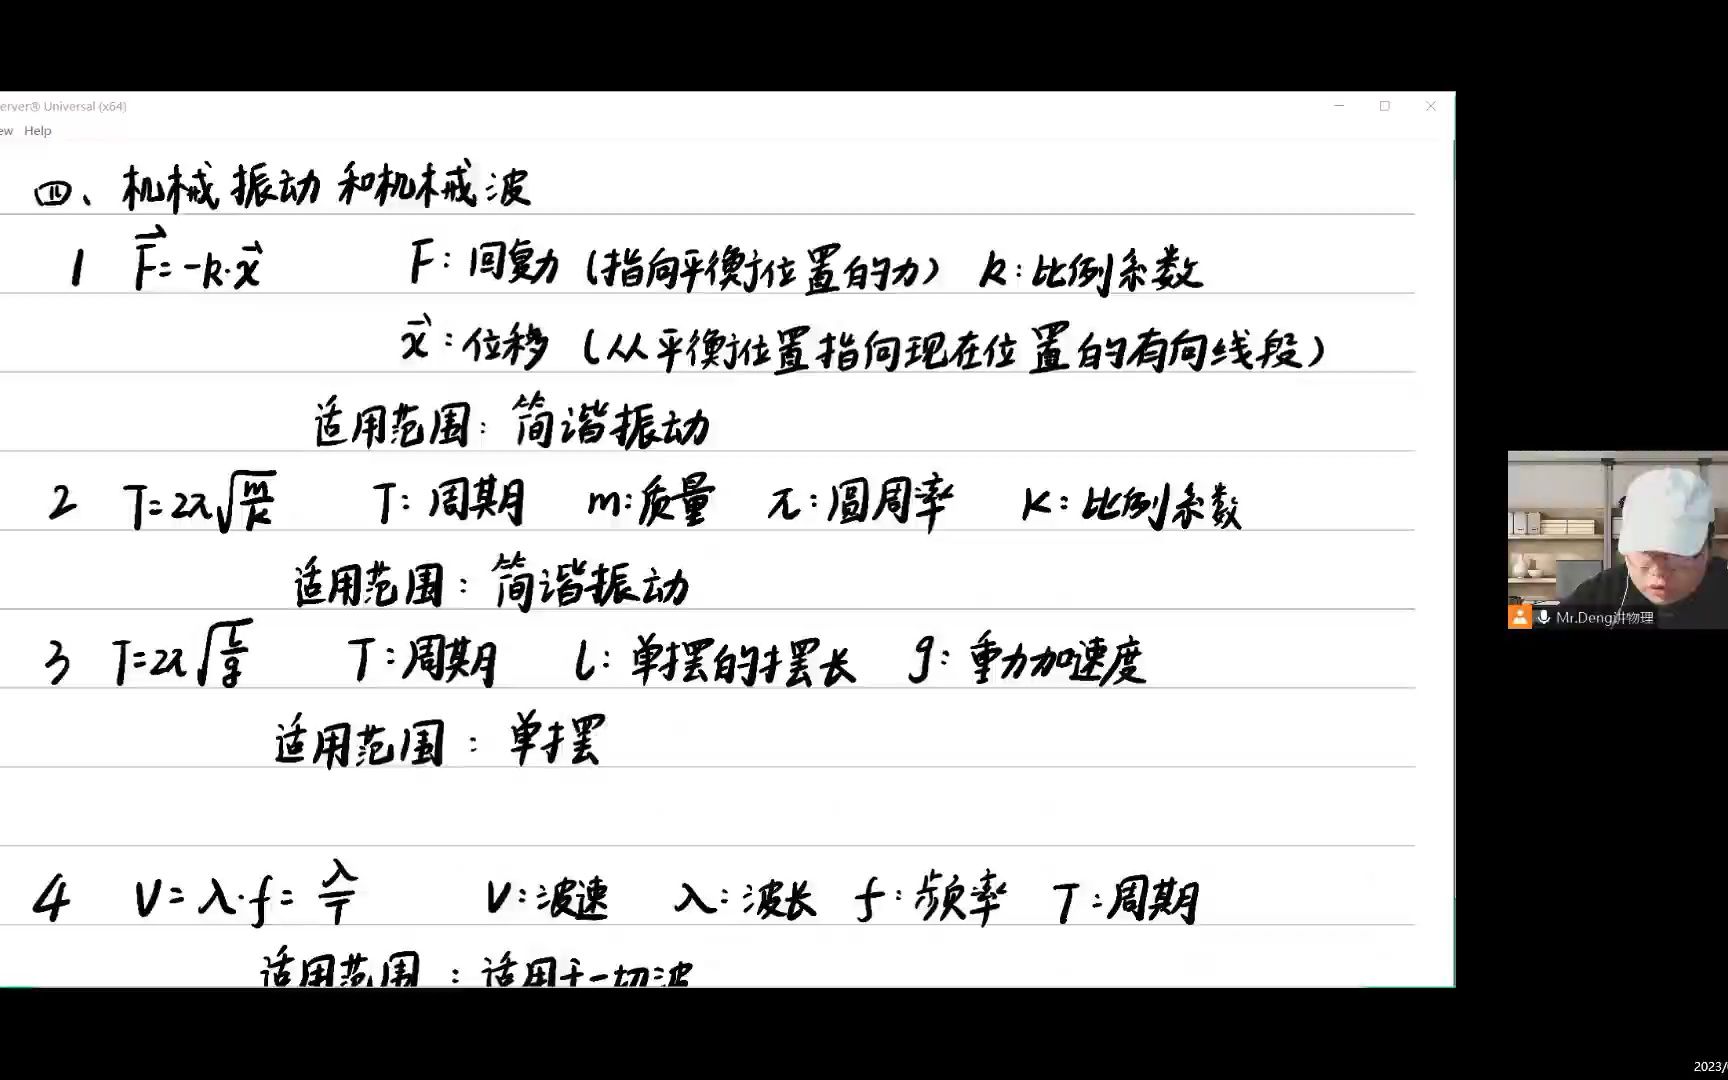 erver® Universal (x64)
ew Help
四、机械振动和机械波
1 F⃗=-k·x⃗ F:回复力(指向平衡位置的力) k:比例系数
x⃗:位移(从平衡位置指向现在位置的有向线段)
适用范围:简谐振动
2 T=2π√(m/k) T:周期 m:质量 π:圆周率 K:比例系数
适用范围:简谐振动
3 T=2π√(L/g) T:周期 l:单摆的摆长 g:重力加速度
适用范围:单摆
4 V=λ·f=λ/T V:波速 λ:波长 f:频率 T:周期
适用范围:适用于一切波
Mr.Deng讲物理
2023/